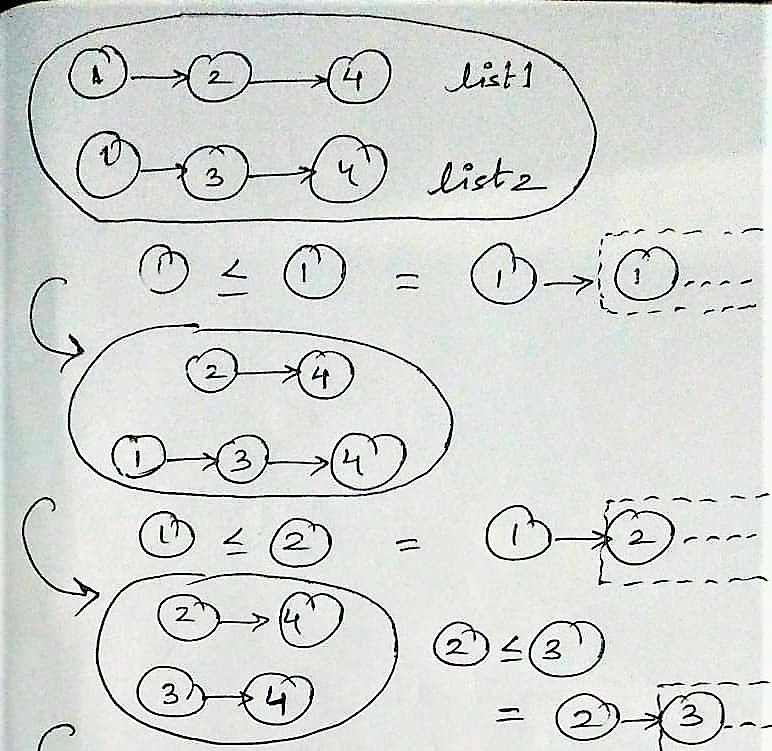 1 → 2 → 4 list1
1 → 3 → 4 list2
1 ≤ 1 = 1 → 1
2 → 4
1 → 3 → 4
1 ≤ 2 = 1 → 2
2 → 4
2 ≤ 3
3 → 4
= 2 → 3